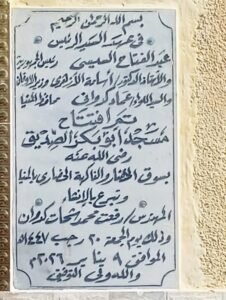 بسم الله الرحمن الرحيم
في عهد السيد الرئيس
عبد الفتاح السيسي رئيس الجمهورية
والأستاذ الدكتور/ أسامة الأزهري وزير الأوقاف
والسيد اللواء/ عماد كدواني محافظ المنيا
تم افتتاح
مسجد أبو بكر الصديق
رضي الله عنه
بسوق الخضار والفاكهة الحضاري بالمنيا
وتبرع بالإنشاء
المهندس/ رفعت محمد شحات كدوان
وذلك يوم الجمعة ٢٠ رجب ١٤٤٧هـ
الموافق ٩ يناير ٢٠٢٦م
والله ولي التوفيق